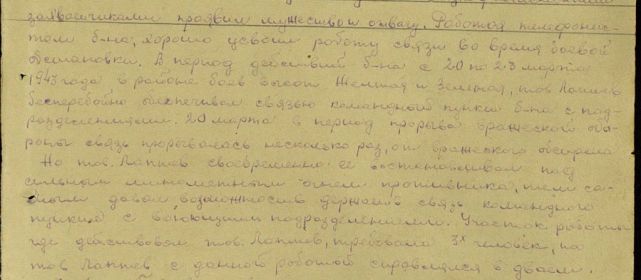 захватчиками проявил мужество и отвагу. Работая телефонис-
том б-на, хорошо усвоил работу связи во время боевой
обстановки. В период действий б-на с 20 по 23 марта
1943 года в районе боев высот Желтая и Зеленая, тов. Лаптев
бесперебойно обеспечивал связью командный пункт б-на с под-
разделениями. 20 марта в период прорыва вражеской обо-
роны связь прорывалась несколько раз, от вражеского обстрела
Но тов. Лаптев своевременно её востонавливал под
сильным минометным огнем противника, тем са-
мым давал возможность держать связь командного
пункта с воюющими подразделениями. Участок работы
где действовал тов. Лаптев, требовал 3х человек, но
тов Лаптев с данной работой справлялся в двоем.